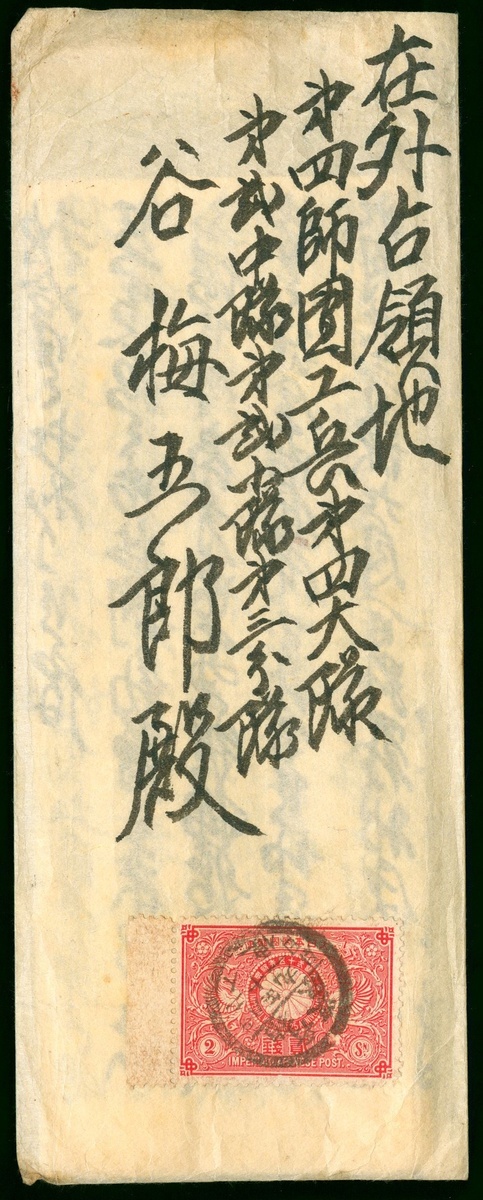 在外占領地
第四師團工兵第四大隊
第弐中隊第弐小隊第三分隊
谷梅五郎殿
2 Sn
IMPERIAL JAPANESE POST.